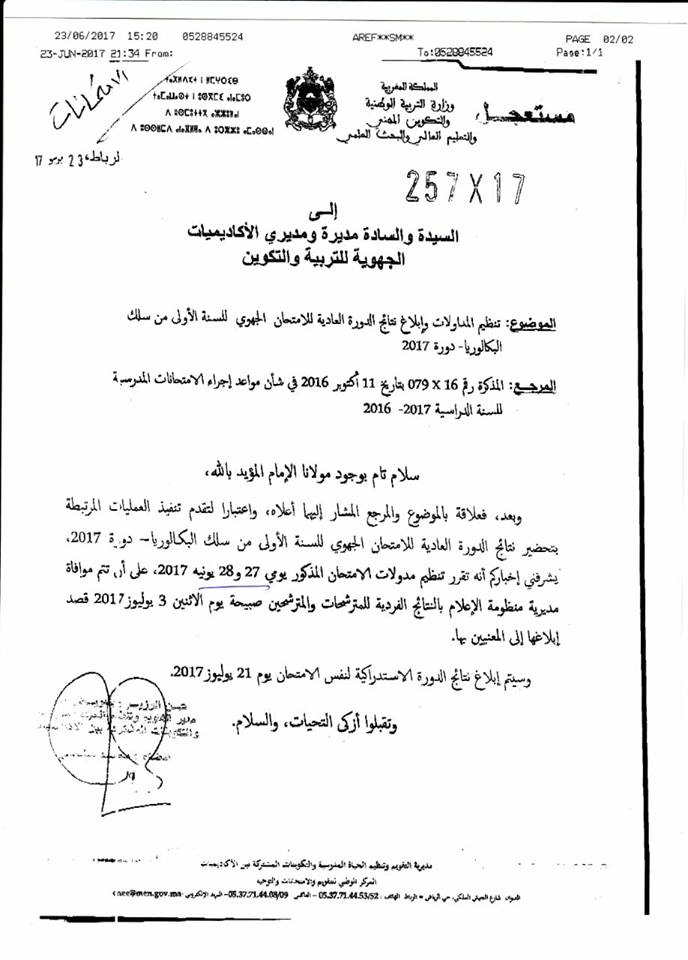 23/06/2017 15:20 0528845524 AREF**SM** PAGE 02/02
23-JUN-2017 21:34 From: To:0528845524 Page:1/1
الامتحانات
المملكة المغربية
وزارة التربية الوطنية
والتكوين المهني
والتعليم العالي والبحث العلمي
مستعجل
الرباط، 23 يونيو 17
257X17
إلى
السيدة والسادة مديرة ومديري الأكاديميات
الجهوية للتربية والتكوين
الموضوع: تنظيم المداولات وإبلاغ نتائج الدورة العادية للامتحان الجهوي للسنة الأولى من سلك
البكالوريا- دورة 2017
المرجع: المذكرة رقم 16 X 079 بتاريخ 11 أكتوبر 2016 في شأن مواعد إجراء الامتحانات المدرسية
للسنة الدراسية 2017- 2016
سلام تام بوجود مولانا الإمام المؤيد بالله،
وبعد، فعلاقة بالموضوع والمرجع المشار إليها أعلاه، واعتبارا لتقدم تنفيذ العمليات المرتبطة
بتحضير نتائج الدورة العادية للامتحان الجهوي للسنة الأولى من سلك البكالوريا– دورة 2017،
يشرفني إخباركم أنه تقرر تنظيم مدولات الامتحان المذكور يومي 27 و28 يونيه 2017، على أن تتم موافاة
مديرية منظومة الإعلام بالنتائج الفردية للمترشحات والمترشحين صبيحة يوم الاثنين 3 يوليوز 2017 قصد
إبلاغها إلى المعنيين بها.
وسيتم إبلاغ نتائج الدورة الاستدراكية لنفس الامتحان يوم 21 يوليوز 2017.
وتقبلوا أزكى التحيات، والسلام.
مديرية التقويم وتنظيم الحياة المدرسية والتكوينات المشتركة بين الأكاديميات
المركز الوطني للتقويم والامتحانات والتوجيه
العنوان: شارع الجيش الملكي، حي الرياض • الرباط الهاتف: 05.37.71.44.53/52 - الفاكس: 05.37.71.44.08/09- البريد الإلكتروني: cnee@men.gov.ma